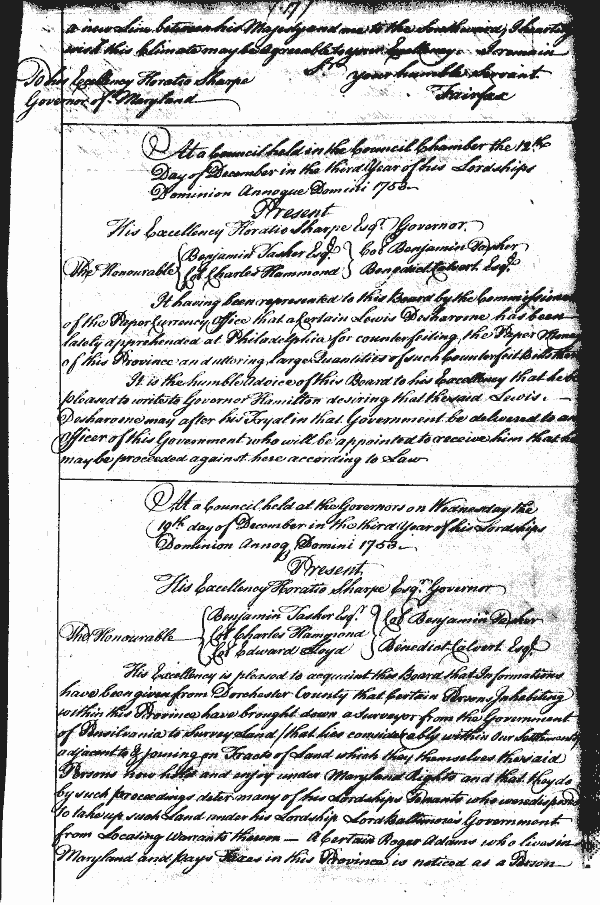 ( 17 )
a new Line between his Majesty and me to the Southward; I heartily
wish this Climate may be agreeable to your Excellency. I remain
Sr. your humble Servant
To his Excellency Horatio Sharpe
Fairfax
Governor of Maryland
At a Council held in the Council Chamber the 12th
Day of December in the third Year of his Lordships
Dominion Annoque Domini 1753
Present
His Excellency Horatio Sharpe Esqr. Governor.
The Honourable { Benjamin Tasker Esqr. } Col Benjamin Tasker
Col Charles Hammond Benedict Calvert Esqr.
It having been represented to this Board by the Commissioners
of the Paper Currency Office that a Certain Lewis Desharome has been
lately apprehended at Philadelphia for counterfeiting the Paper Money
of this Province and uttering large Quantities of such Counterfeit Bills
It is the humble Advice of this Board to his Excellency that he be
pleased to write to Governor Hamilton desiring that the said Lewis
Desharome may after his Tryal in that Government be delivered to an
Officer of this Government who will be appointed to receive him that he
may be proceeded against here according to Law
At a Council held at the Governors on Wednesday the
19th day of December in the third Year of his Lordships
Dominion Annoq Domini 1753
Present
His Excellency Horatio Sharpe Esqr. Governor
The Honourable { Benjamin Tasker Esqr. } Col Benjamin Tasker
Col Charles Hammond
Col Edward Lloyd Benedict Calvert Esqr.
His Excellency is pleased to acquaint this Board that Informations
have been given from Dorchester County that Certain Persons Inhabiting
within this Province have brought down a Surveyor from the Government
of Pensilvania to Survey Land, that lies considerably within Our Settlements
adjacent to & joining on Tracts of Land which they themselves the said
Persons now hold and enjoy under Maryland Rights and that they do
by such proceedings deter many of his Lordships Tenants who were disposed
to take up such Land under his Lordship Lord Baltimore's Government
from Locating Warrants thereon — A Certain Roger Adams who lives in
Maryland and pays Taxes in this Province is noticed as a Person